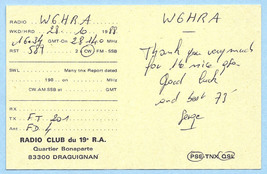 RADIO W6HRA
WKD/HRD 28-10 1988
16h34 GMT-On 28.140 MHz
RST 589 2 CW FM-SSB
SWL Many tnx Report dated
198 at MHz
CW-AM SSB at GMT
RX
TX FT 201
Ant FD 4
RADIO CLUB du 19e R.A.
Quartier Bonaparte
83300 DRAGUIGNAN
W6HRA
Thank you very much
for the nice qso
Good luck
and best 73'
Serge
PSE-TNX QSL